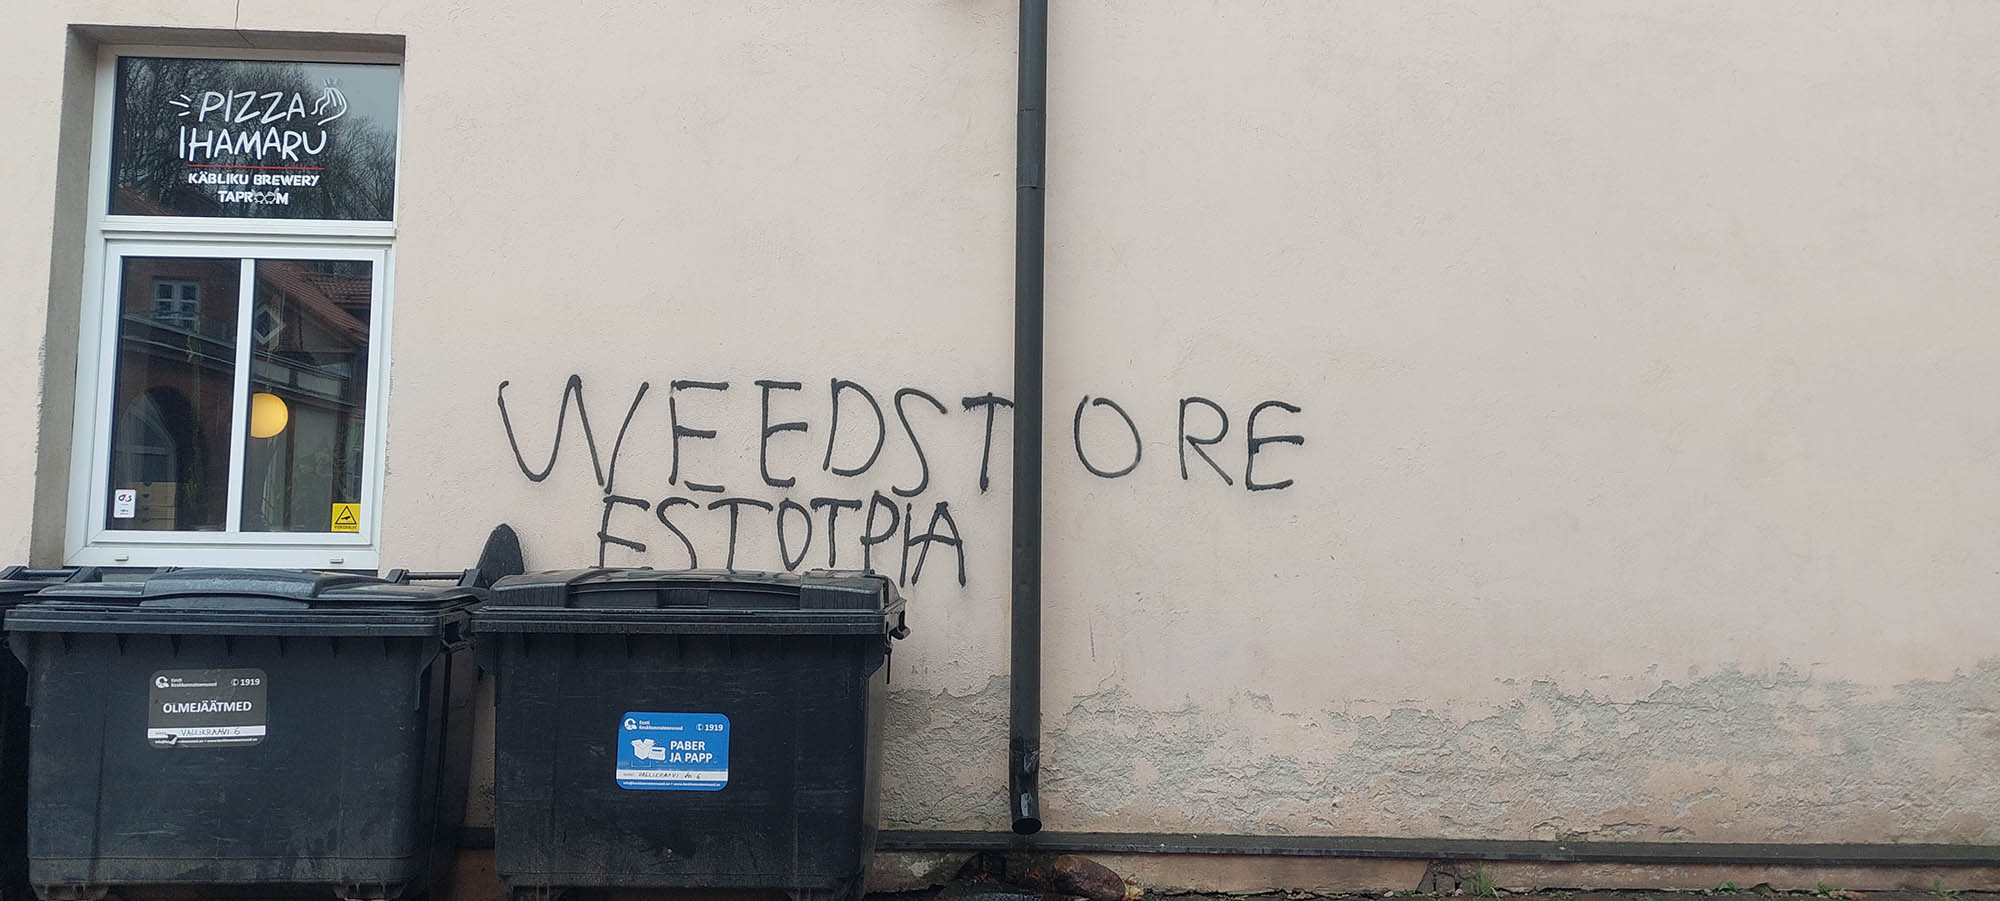 PIZZA
IHAMARU
KÄBLIKU BREWERY
TAPROOM
WEEDSTORE
ESTOTPIA
Eesti
Keskkonnateenused
1919
OLMEJÄÄTMED
VALLIKRAAVI 6
Eesti
Keskkonnateenused
1919
PABER
JA PAPP
VALLIKRAAVI 6